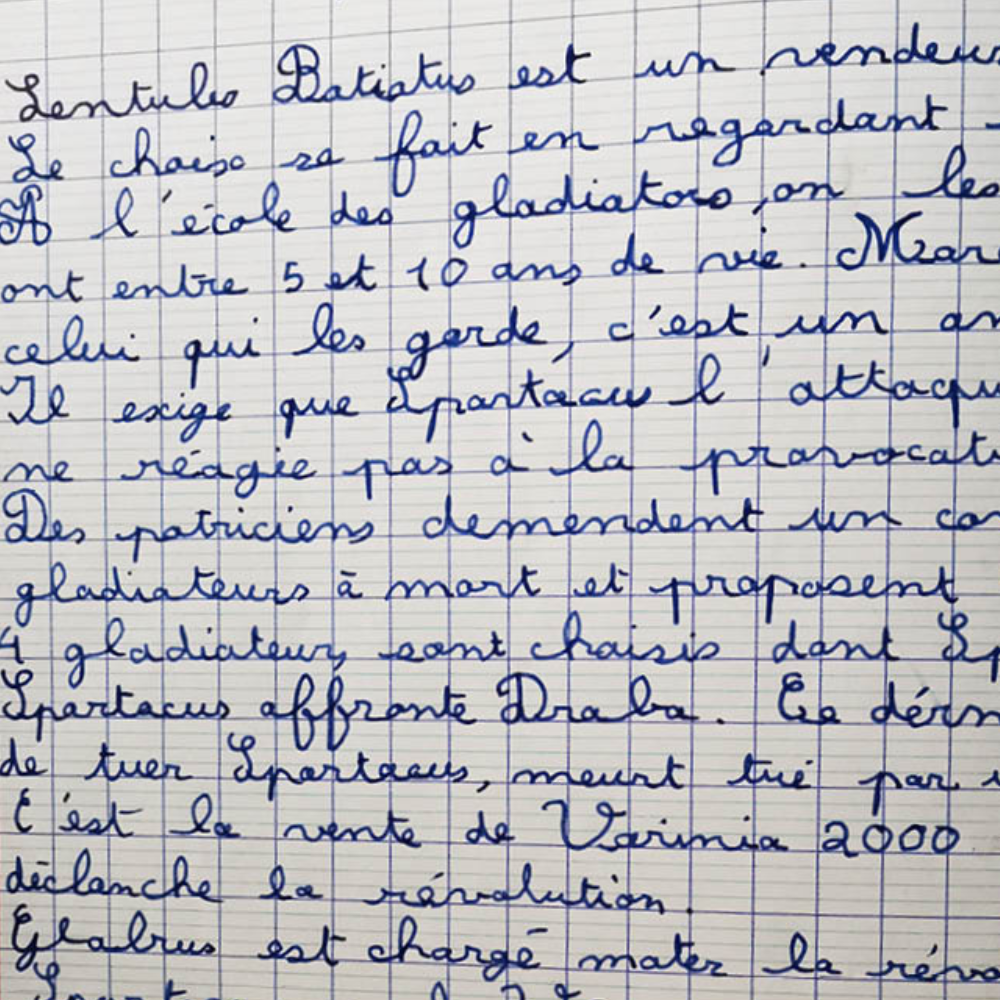 Lentulus Batiatus est un vendeur
Le choix se fait en regardant
A l'école des gladiators, on les
ont entre 5 et 10 ans de vie.
celui qui les garde, c'est un
Il exige que Spartacus l'attaqu
ne réagie pas à la provocati
Des patriciens demendent un
gladiateurs à mort et proposent
4 gladiateurs sont choisis dont Sp
Spartacus affronte Draba.
de tuer Spartacus, meurt tué par
C'est la vente de Varinia 2000
déclanche la révolution.
Glabrus est chargé mater la révo